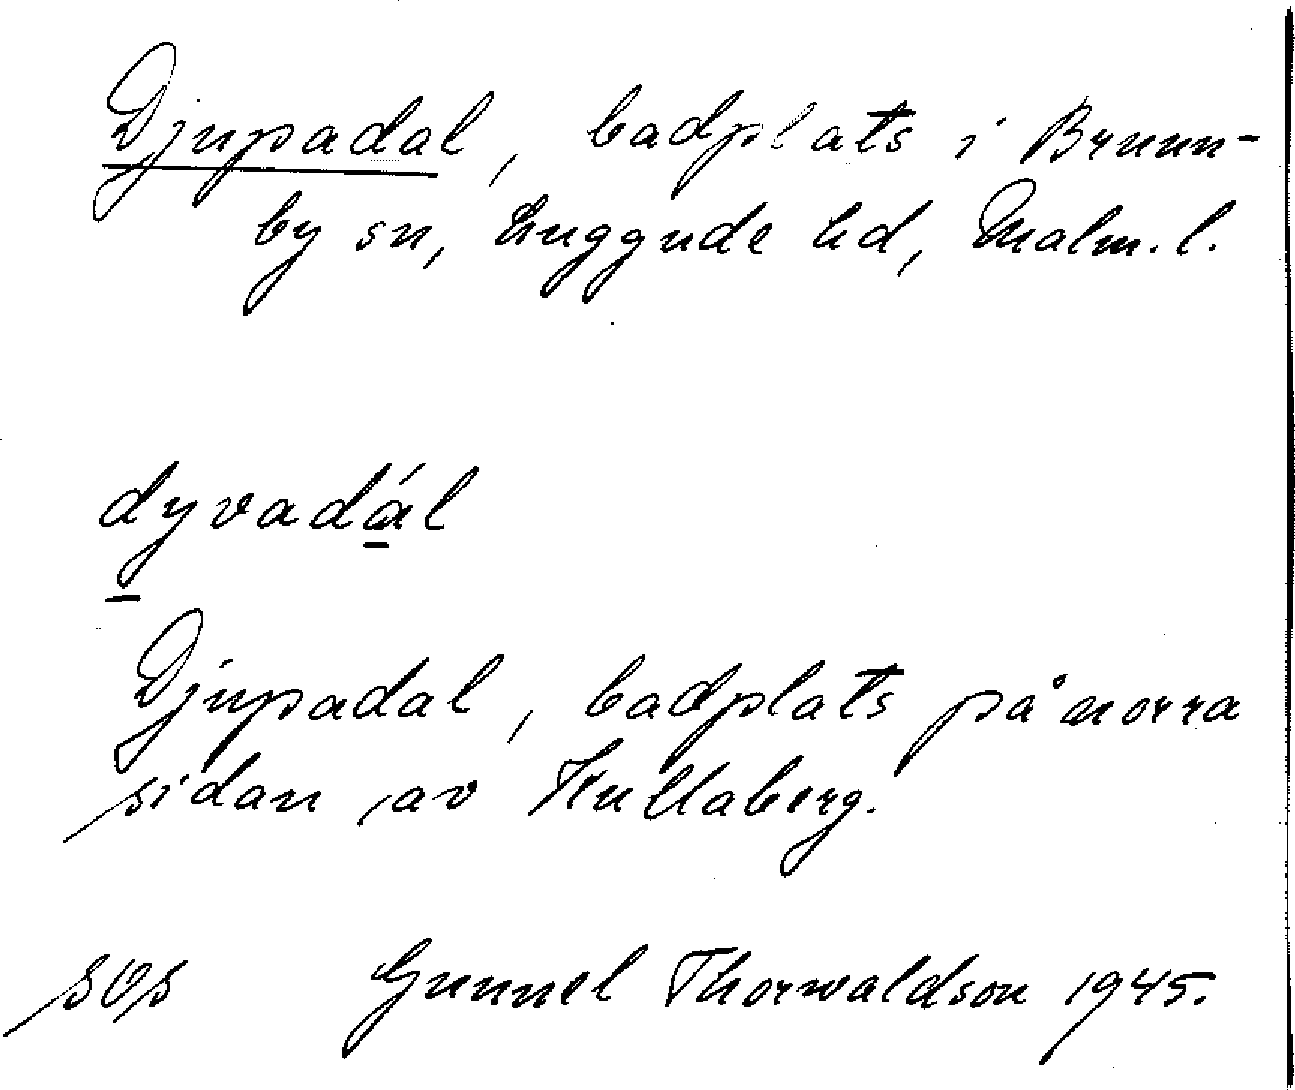 Djupadal, badplats i Brunn-
by sn, Luggude hd, Malm. l.
dyvadál
Djupadal, badplats på norra
sidan av Kullaberg.
SOS Gunnel Thorwaldson 1945.